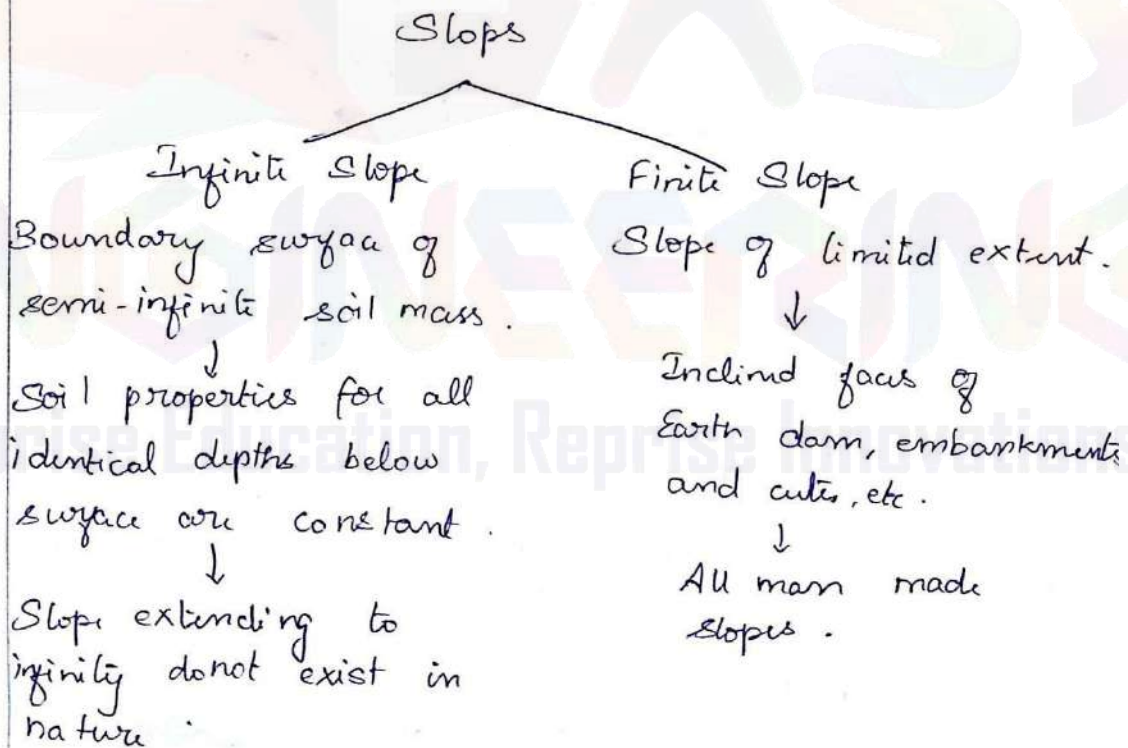 Slops
Infinite Slope
Boundary surface of
semi-infinite soil mass.
↓
Soil properties for all
identical depths below
surface are constant.
↓
Slope extending to
infinity donot exist in
nature.
Finite Slope
Slope of limited extent.
↓
Inclined faces of
Earth dam, embankments
and cuts, etc.
↓
All man made
slopes.
ENGINEERING
Reprise Education, Reprise Innovations